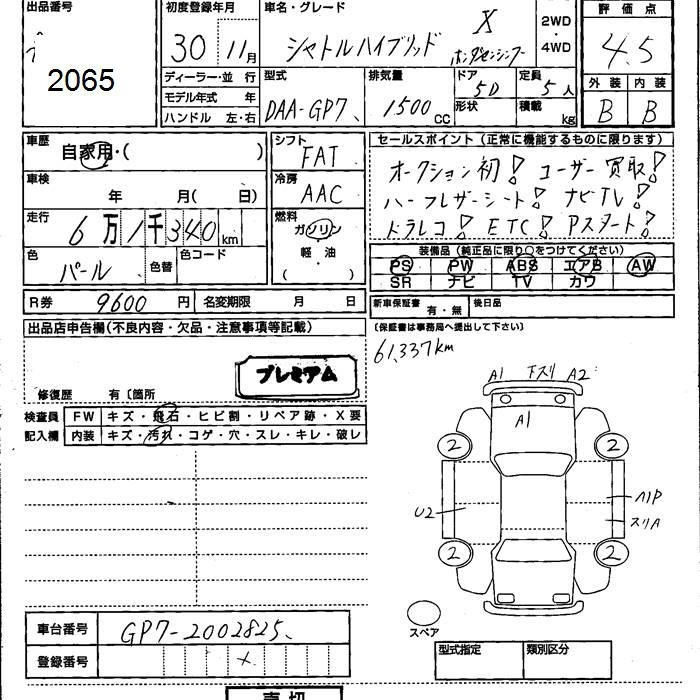 出品番号 初度登録年月 車名・グレード 評価点
2065 30年 11月 シャトルハイブリッド X ホンダセンシング 2WD ・ 4WD 4.5
ディーラー・並行 型式 排気量 ドア 定員 外装 内装
モデル年式 年 DAA-GP7 1500 CC 5D 5人 B B
ハンドル 左・右 形状 積載 kg
車歴 自家用・( ) シフト FAT セールスポイント (正常に機能するものに限ります)
車検 年 月( 日) 冷房 AAC オークション初! ユーザー買取!
走行 6万1千340km 燃料 ガソリン ハーフレザーシート! ナビTV!
軽・油 ドラレコ! ETC! アスタート!
色 パール 色替 色コード ( ) 装備品 (純正品に限り○をつけてください)
PS PW ABS エアB AW
SR ナビ TV カワ
R券 9600円 名変期限 月 日 新車保証書 有・無 後日品
出品店申告欄(不良内容・欠品・注意事項等記載) (保証書は事務局へ提出して下さい)
61,337km
プレミアム
修復歴 有〔箇所
検査員 FW キズ・飛石・ヒビ割・リペア跡・X要
記入欄 内装 キズ・汚れ・コゲ・穴・スレ・キレ・破レ
A1 下スリ A2
A1
2 2
U2 ハ1P
スリA
2 2
スペア
車台番号 GP7-2002825
登録番号
型式指定 類別区分